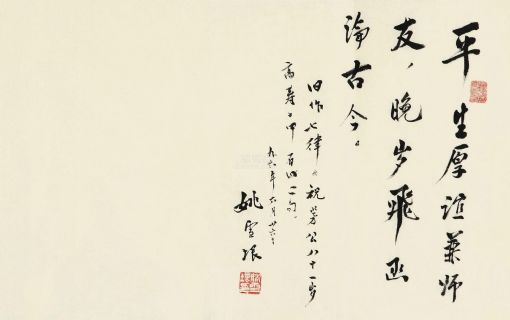 平生厚谊兼师
友，晚岁飛函
論古今。
旧作七律。祝茅公八十一岁
高寿中二句。
年六月廿六日
姚雪垠